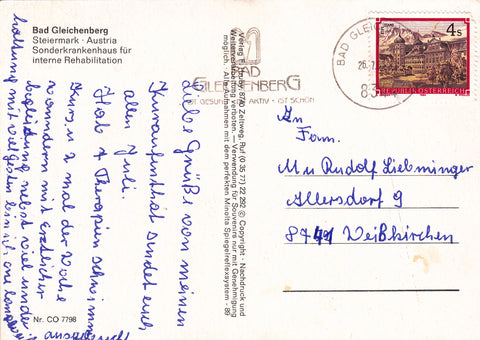 Bad Gleichenberg
Steiermark - Austria
Sonderkrankenhaus für
interne Rehabilitation
Liebe Grüße von meinen
Kuraufenthalt sendet euch
allen Juli.
Hab 4 Therapien schwimm
Kurs, u 2 mal der Woche
wandern mit erztlicher
begleidung, nebst viel under
haltung mit
Nr. CO 7798
Verlag F. 8740 Zeltweg, Ruf (0 35 77) 22 292 © Copyright - Nachdruck und
Weiterverarbeitung verboten. — Verwendung für Souvenirs nur mit Genehmigung
möglich. Alle Aufnahmen mit dem perfekten Minolta Spiegelreflexsystem - 89
BAD
GLEICHENBERG
IST GESUND AKTIV · IST SCHÖN
BAD GLEICH
4s
REPUBLIK ÖSTERREICH
An
Fam.
M u Rudolf Liebminger
Allersdorf 9
8741 Weißkirchen